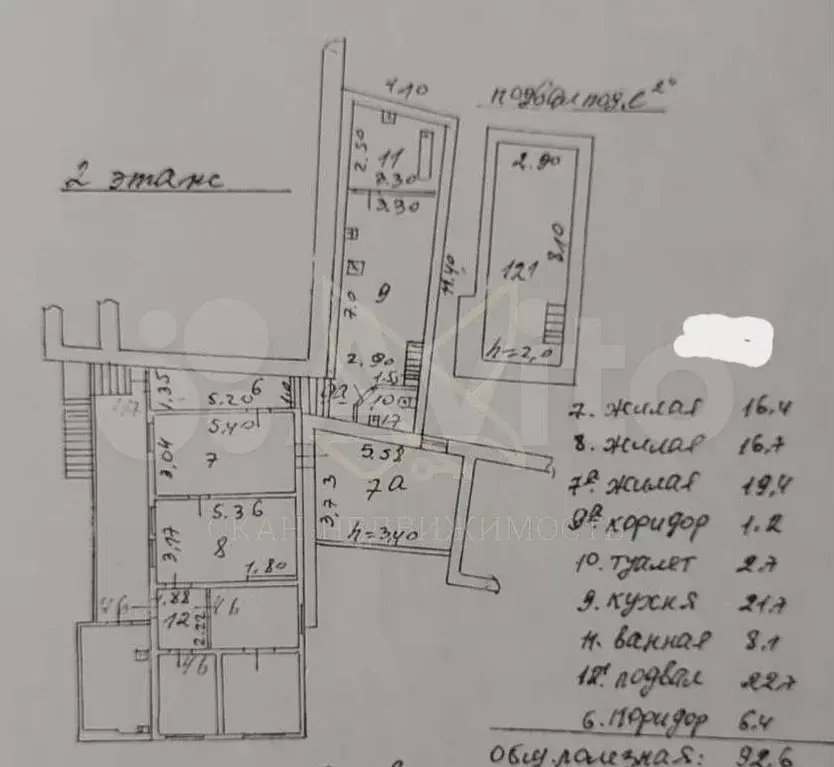 4.10
подвал под. С
2 этаже
2.50
11
3.30
3.30
2.90
8.10
121
h=2,0
9
7.0
11.40
2.90
1.50
9а
10
1.7
1,35
5.20
6
5.40
3,04
7
5.58
7а
3,73
h=3,40
5.36
3,17
8
1.80
1.88
12
2.22
46
46
46
Avito
СКАН НЕДВИЖИМОСТЬ
7. жилая 16.4
8. жилая 16.7
7а жилая 19,4
9а коридор 1.2
10. туалет 2.7
9. кухня 21,7
11. ванная 8.1
12¹. подвал 22.7
6. коридор 6.4
Общ. полезная: 92.6